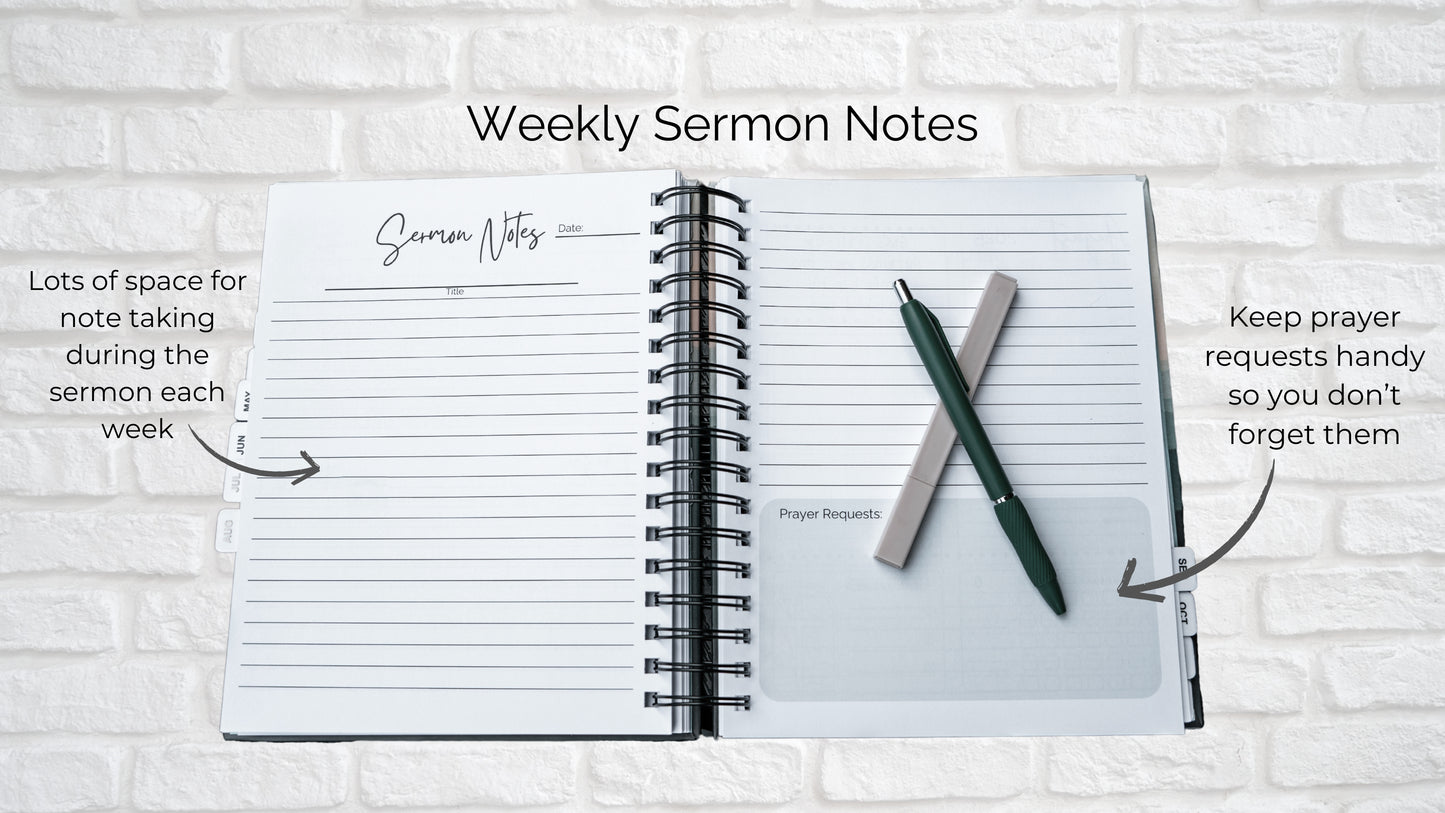 Weekly Sermon Notes
Lots of space for
note taking
during the
sermon each
week
Sermon Notes
Date:
Title
MAY
JUN
JUL
AUG
Prayer Requests:
SE
OCT
Keep prayer
requests handy
so you don’t
forget them